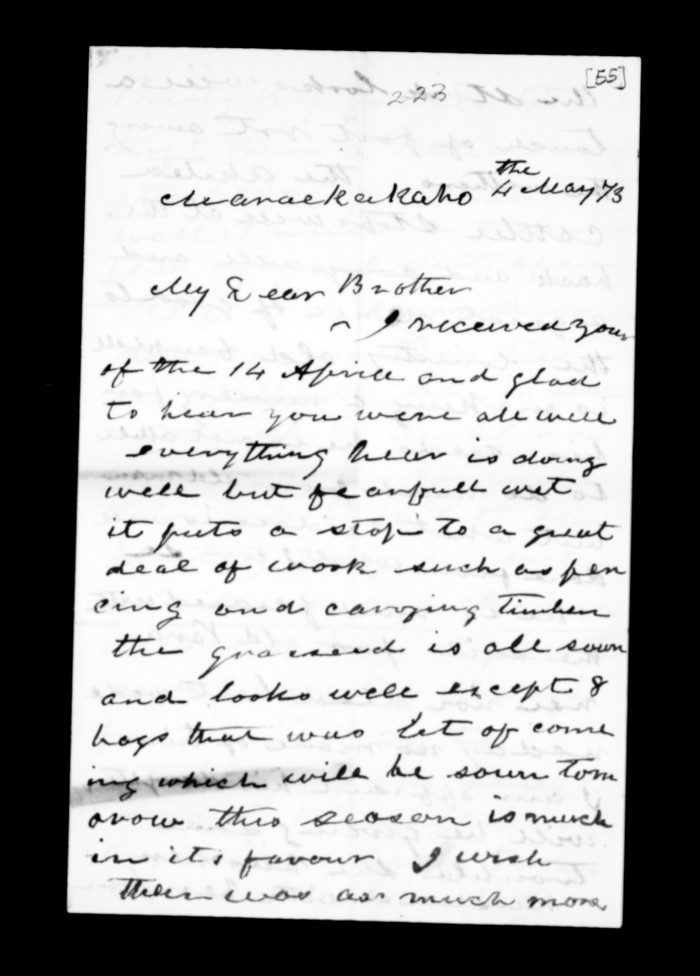 [55]
223
Maraekakaho the 4 May 73
My Dear Brother
I received your
of the 14 Aprill and glad
to hear you were all well
everything heer is doing
well but fearfull wet
it puts a stop to a great
deal of work such as fen
cing and carrying timber
the grasseed is all sown
and looks well except 8
bags that was let of come
ing which will be sown tom
orow this season is much
in its favour I wish
ther was as much more